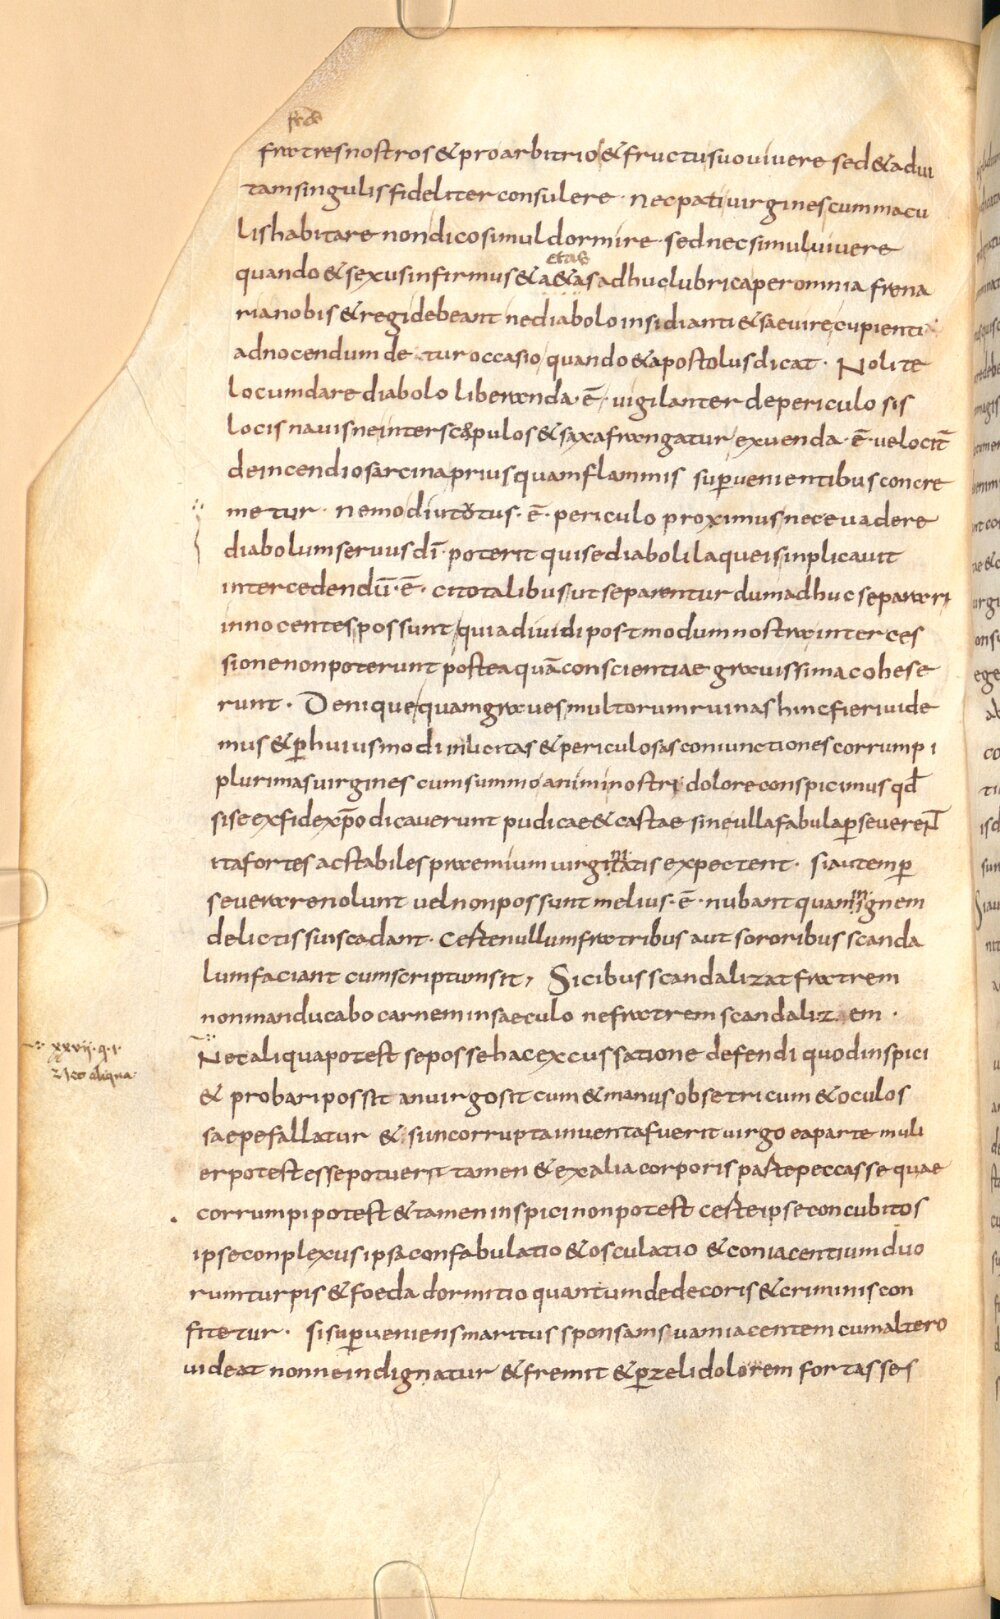 fratres nostros & pro arbitrio & fructu suo uiuere sed & ad ui
tam singulis fideliter consulere · nec pati uirgines cum macu
lis habitare non dico simul dormire · sed nec simul uiuere
etas
quando & sexus infirmus & a&as adhuc lubrica per omnia frena
ri a nobis & regi debeant ne diabolo insidianti & saeuire cupienti
ad nocendum de tur occasio quando & apostolus dicat · Nolite
locum dare diabolo liberanda · ē · uigilanter de periculo sis
locis nauis ne inter scopulos & saxa frangatur exuenda · ē uelocit̄
de incendio sarcina priusquam flammis superuenientibus concre
metur · nemo diu totus · ē · periculo proximus nec euadere
diabolum seruus dī · poterit qui se diaboli laqueis inplicauit
intercedendū · ē · cito talibus ut separentur dum adhuc separari
innocentes possunt quia diuidi postmodum nostra interces
sione non poterunt postea quā conscientiae grauissima cohese
runt · Denique quam graues multorum ruinas hinc fieri uide
mus & p̄ huiusmodi inlicitas & periculosas coniunctiones corrumpi
plurimas uirgines cum summo animi nostri dolore conspicimus qd̄
si se ex fide xp̄o dicauerunt pudicae & castae sine ulla fabula p̄seuerent
ita fortes ac stabiles praemium uirginitatis expectent · si autem p̄
seuerare nolunt uel non possunt melius · ē · nubant quam in ignem
delictis suis cadant · Certe nullum fratribus aut sororibus scanda
lum faciant cum scriptum sit, Si cibus scandalizat fratrem
non manducabo carnem in saeculo ne fratrem scandalizem ·
xxvii · q · i ·
Nec aliqua
Nec aliqua potest se posse hac excussatione defendi quod inspici
& probari possit an uirgo sit cum & manus obsetricum & oculos
saepe fallatur & si incorrupta inuenta fuerit uirgo ea parte muli
er potest esse potuerit tamen & ex alia corporis parte peccasse quae
corrumpi potest & tamen inspici non potest certe ipse concubitos
ipse conplexus ipsa confabulatio & osculatio & coniacentium duo
rum turpis & foeda dormitio quantum dedecoris & criminis con
fitetur · si superueniens maritus sponsam suam iacentem cum altero
uideat nonne indignatur & fremit & p̄ zeli dolorem fortasse s